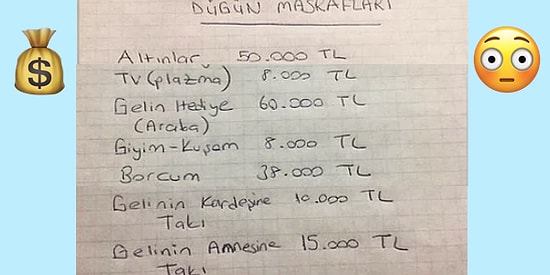 DÜGÜN MASKAFLARI
Altınlar, 50.000 TL
TV (plazma) 8.000 TL
Gelin Hediye 60.000 TL
(Araba)
Giyim-Kuşam 8.000 TL
Borcum 38.000 TL
Gelinin Kardeşine 10.000 TL
Takı
Gelinin Annesine 15.000 TL
Takı